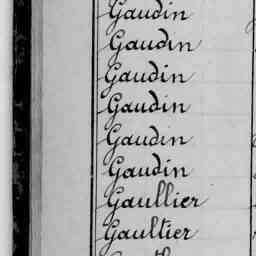 Gaudin
Gaudin
Gaudin
Gaudin
Gaudin
Gaudin
Gaullier
Gaultier